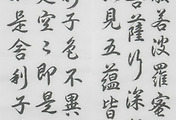 般若波羅蜜
菩薩行深
見五蘊皆
利子色不異
是空々即是
是舍利子